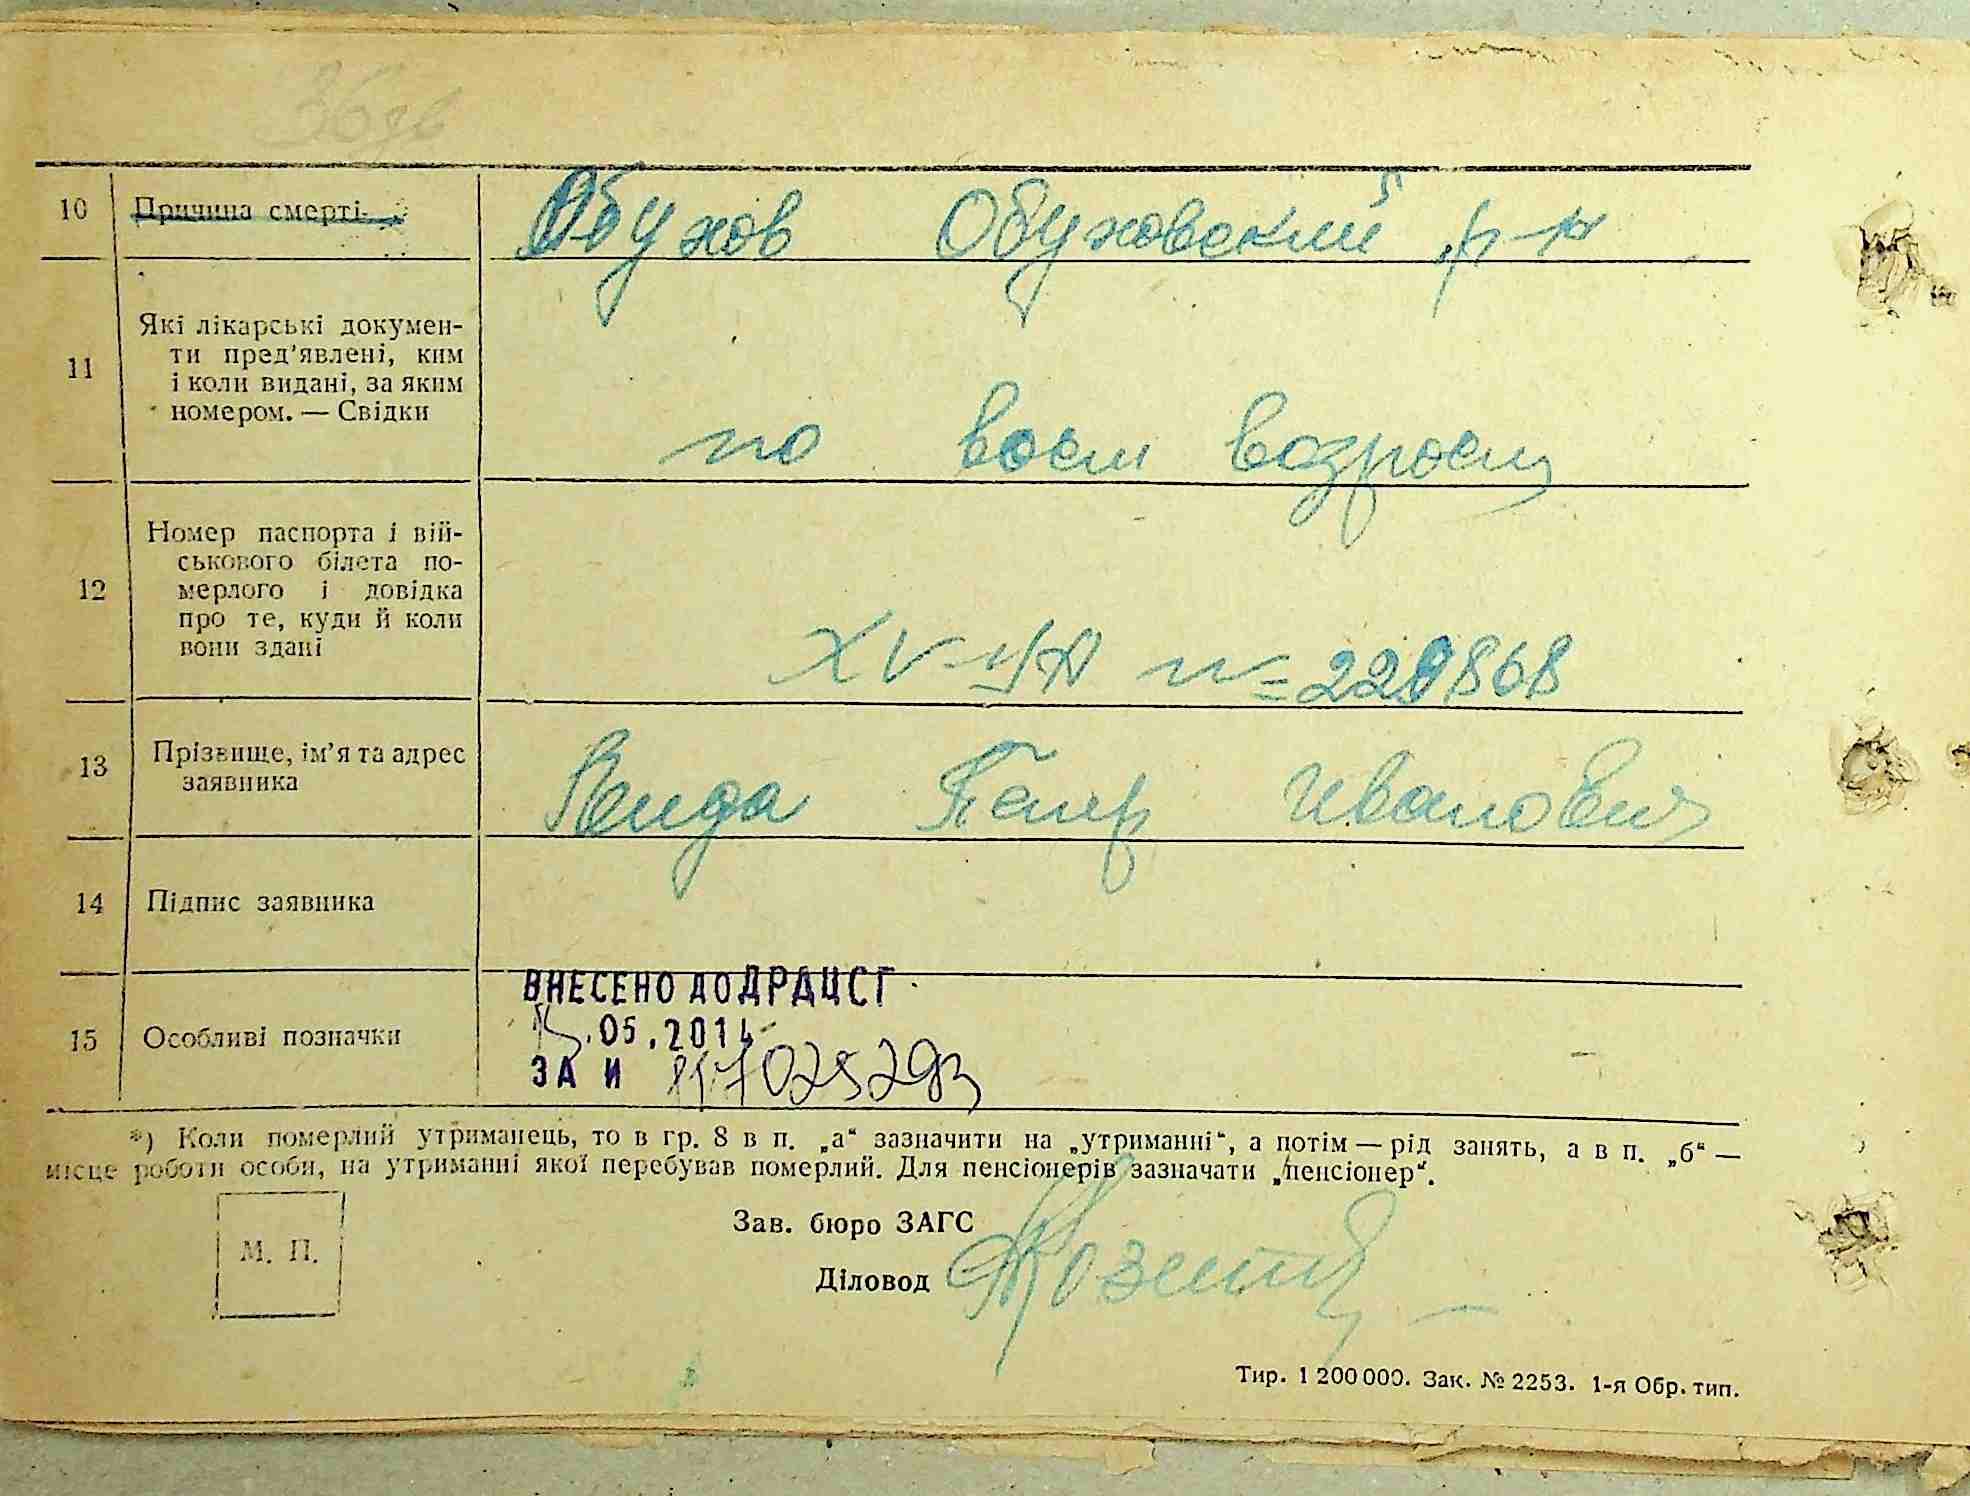 10 Причина смерті Обухов Обуховский р-н
11 Які лікарські докумен-
ти пред'явлені, ким
і коли видані, за яким
номером. — Свідки
по восст возрост
12 Номер паспорта і вій-
ськового білета по-
мерлого і довідка
про те, куди й коли
вони здані
XV-ЦА № 229868
13 Прізвище, ім'я та адрес
заявника
Петр Иванович
14 Підпис заявника
15 Особливі позначки
ВНЕСЕНО ДО ДРАЦСГ
.05.2014
ЗА И
*) Коли померлий утриманець, то в гр. 8 в п. „а“ зазначити на „утриманні“, а потім — рід занять, а в п. „б“ —
місце роботи особи, на утриманні якої перебував померлий. Для пенсіонерів зазначати „пенсіонер“.
М. П.
Зав. бюро ЗАГС
Діловод
Тир. 1 200 000. Зак. № 2253. 1-я Обр. тип.